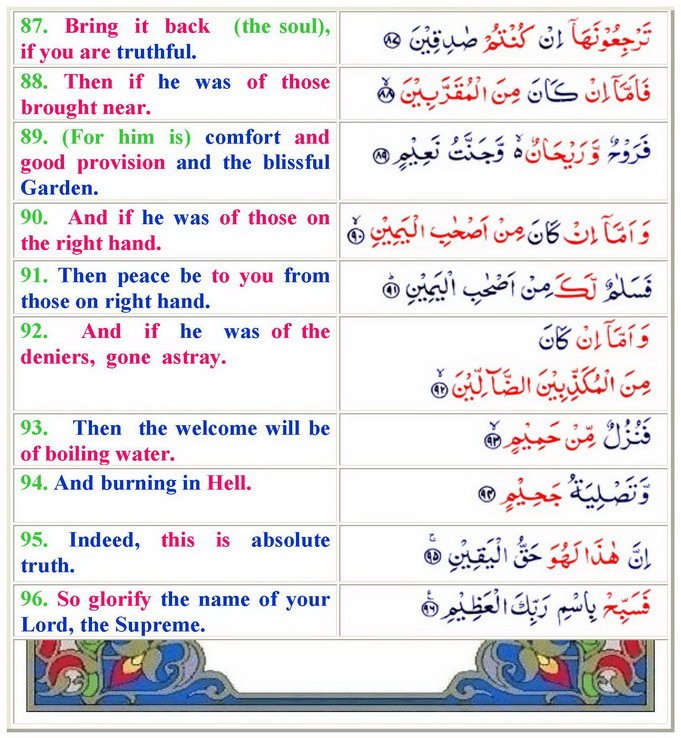 87. Bring it back (the soul),
if you are truthful.
تَرْجِعُوْنَهَاۤ اِنْ كُنْتُمْ صٰدِقِيْنَ ﴿۸۷﴾
88. Then if he was of those
brought near.
فَاَمَّاۤ اِنْ كَانَ مِنَ الْمُقَرَّبِيْنَۙ ﴿۸۸﴾
89. (For him is) comfort and
good provision and the blissful
Garden.
فَرَوْحٌ وَّرَيْحَانٌ ۙ۬ وَّجَنَّتُ نَعِيْمٍ ﴿۸۹﴾
90. And if he was of those on
the right hand.
وَ اَمَّاۤ اِنْ كَانَ مِنْ اَصْحٰبِ الْيَمِيْنِۙ ﴿۹۰﴾
91. Then peace be to you from
those on right hand.
فَسَلٰمٌ لَّكَ مِنْ اَصْحٰبِ الْيَمِيْنِؕ ﴿۹۱﴾
92. And if he was of the
deniers, gone astray.
وَ اَمَّاۤ اِنْ كَانَ
مِنَ الْمُكَذِّبِيْنَ الضَّآلِّيْنَۙ ﴿۹۲﴾
93. Then the welcome will be
of boiling water.
فَنُزُلٌ مِّنْ حَمِيْمٍۙ ﴿۹۳﴾
94. And burning in Hell.
وَّتَصْلِيَةُ جَحِيْمٍ ﴿۹۴﴾
95. Indeed, this is absolute
truth.
اِنَّ هٰذَا لَهُوَ حَقُّ الْيَقِيْنِۚ ﴿۹۵﴾
96. So glorify the name of your
Lord, the Supreme.
فَسَبِّحْ بِاسْمِ رَبِّكَ الْعَظِيْمِ ﴿۹۶﴾